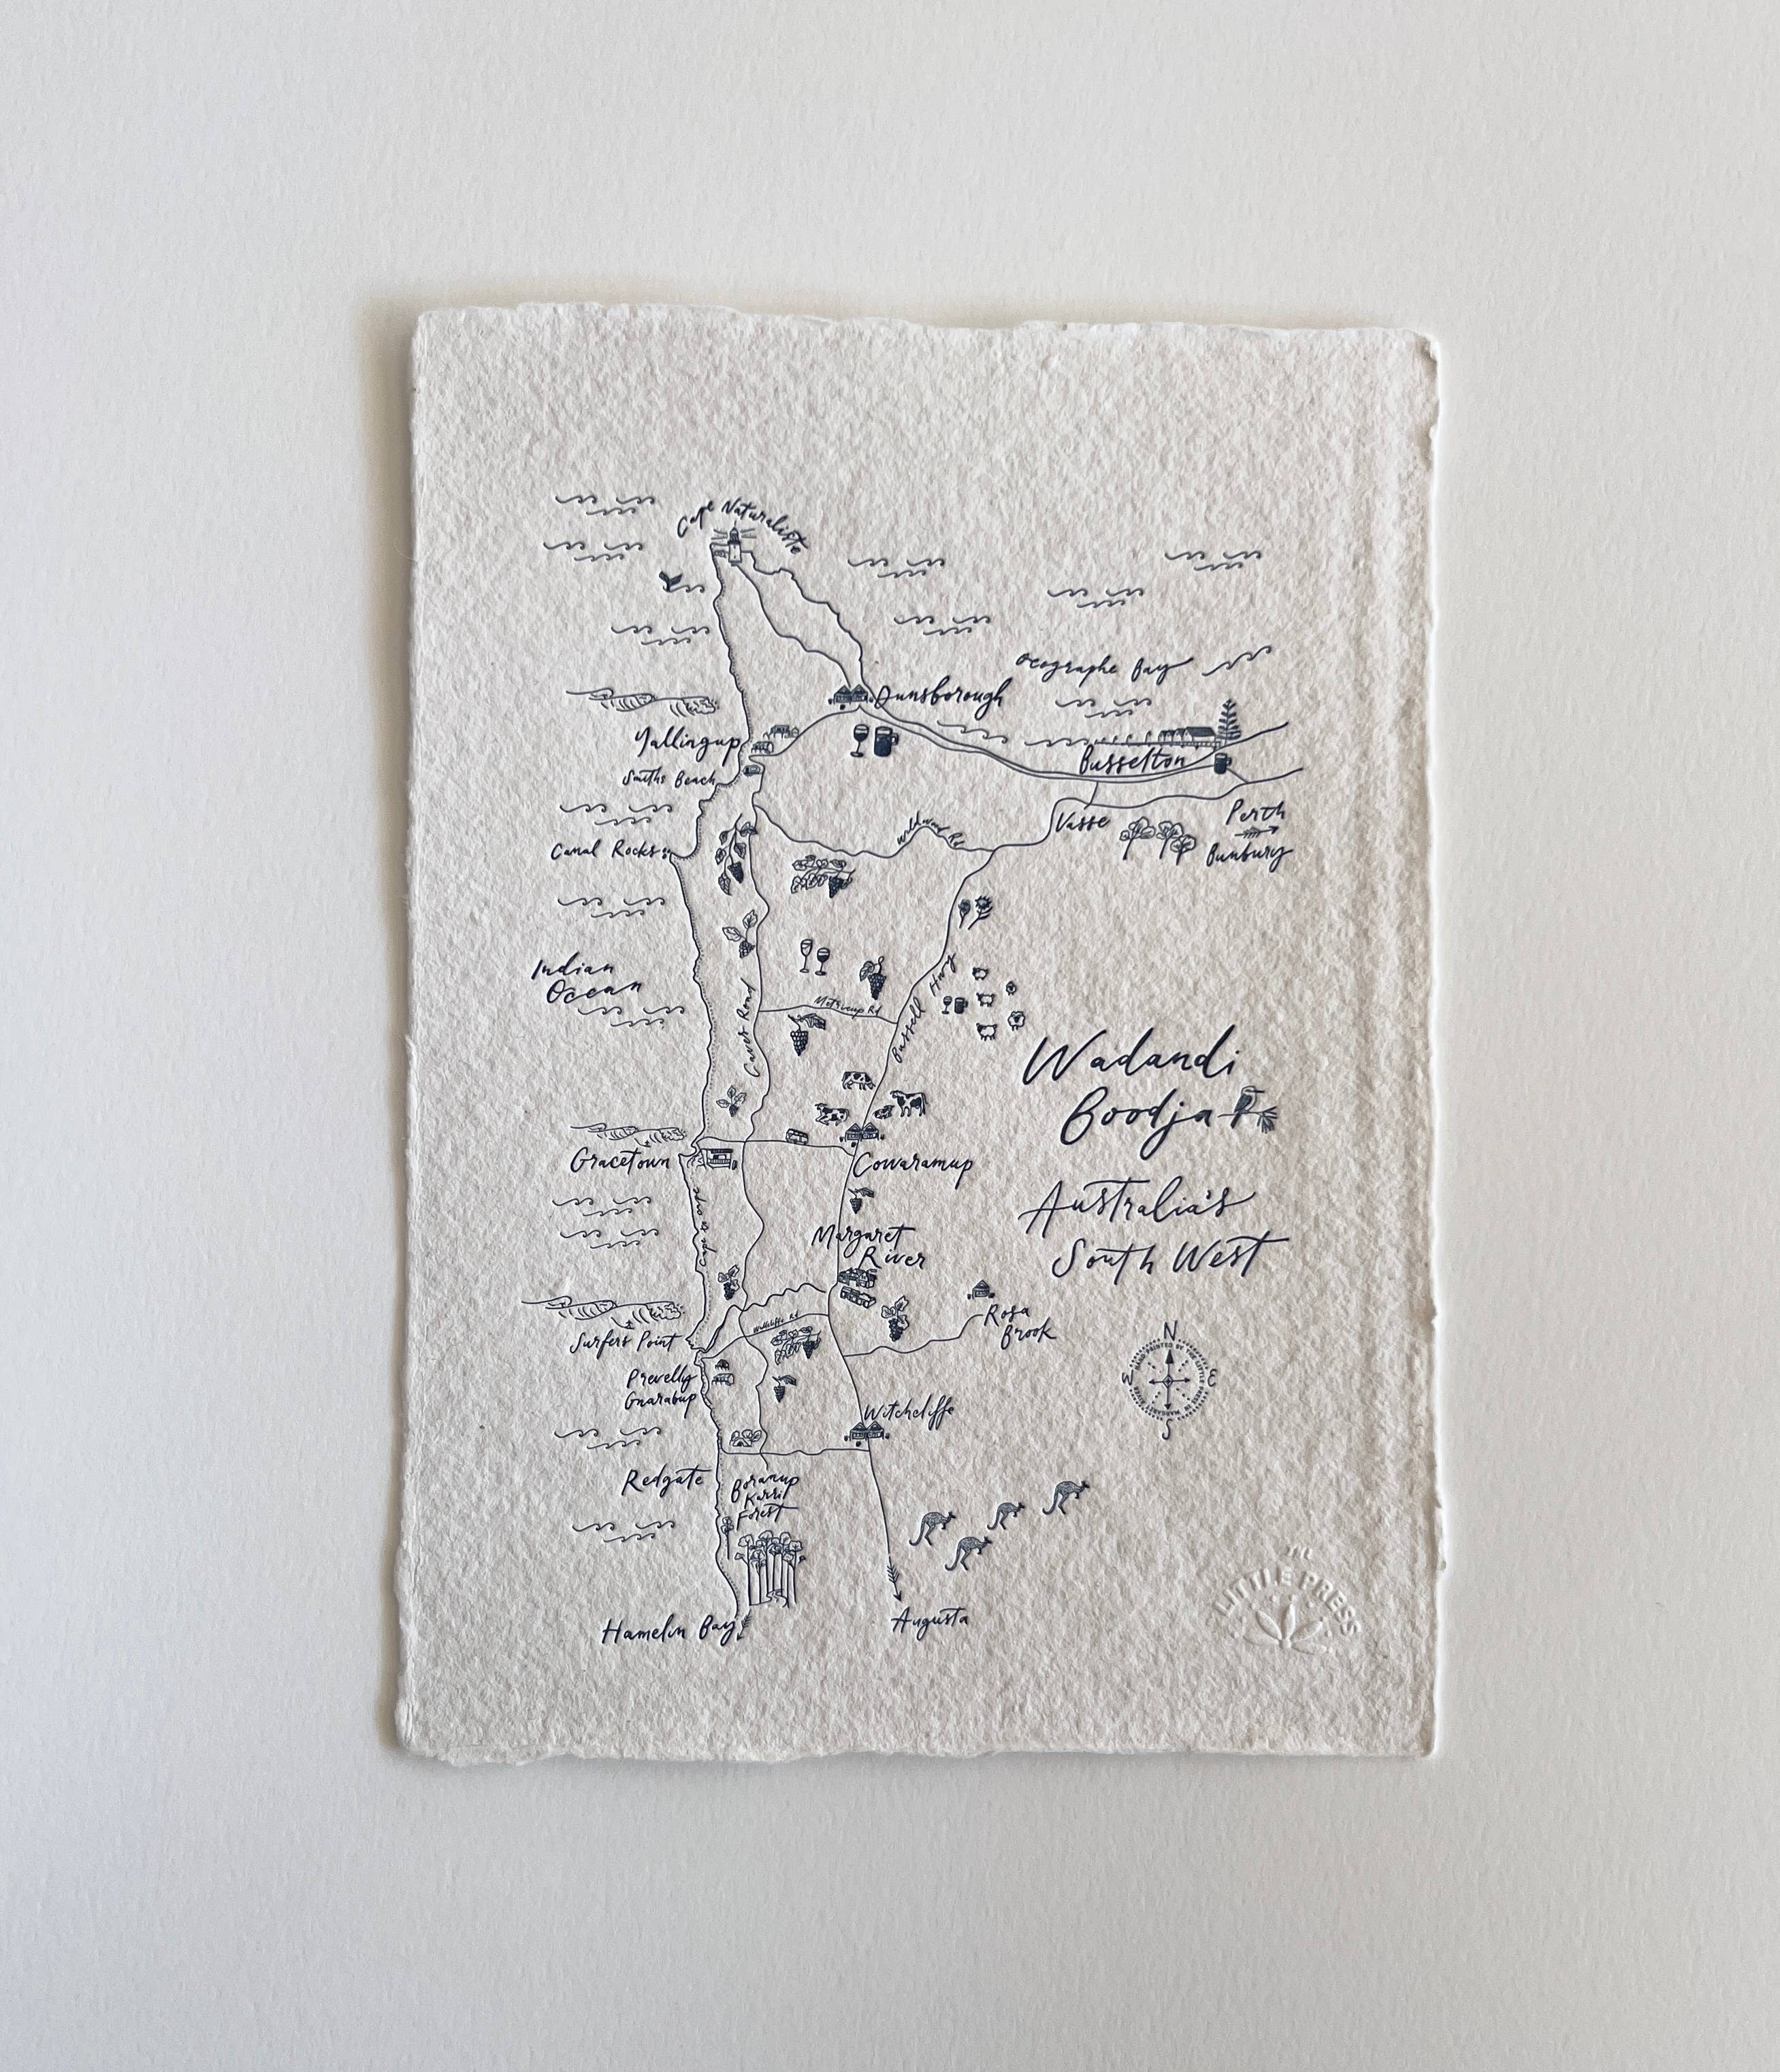 Cape Naturaliste
Geographe Bay
Dunsborough
Yallingup
Smiths Beach
Busselton
Vasse
Perth
Bunbury
Wildwood Rd
Canal Rocks
Indian
Ocean
Caves Road
Metricup Rd
Bussell Hwy
Wadandi
Boodja
Australia's
South West
Gracetown
Cowaramup
Cape to Cape
Margaret
River
Rosa
Brook
Surfers Point
Wallcliffe Rd
Prevelly
Gnarabup
N
W
E
S
Witchcliffe
Redgate
Boranup
Karri
Forest
Hamelin Bay
Augusta
THE
LITTLE PRESS